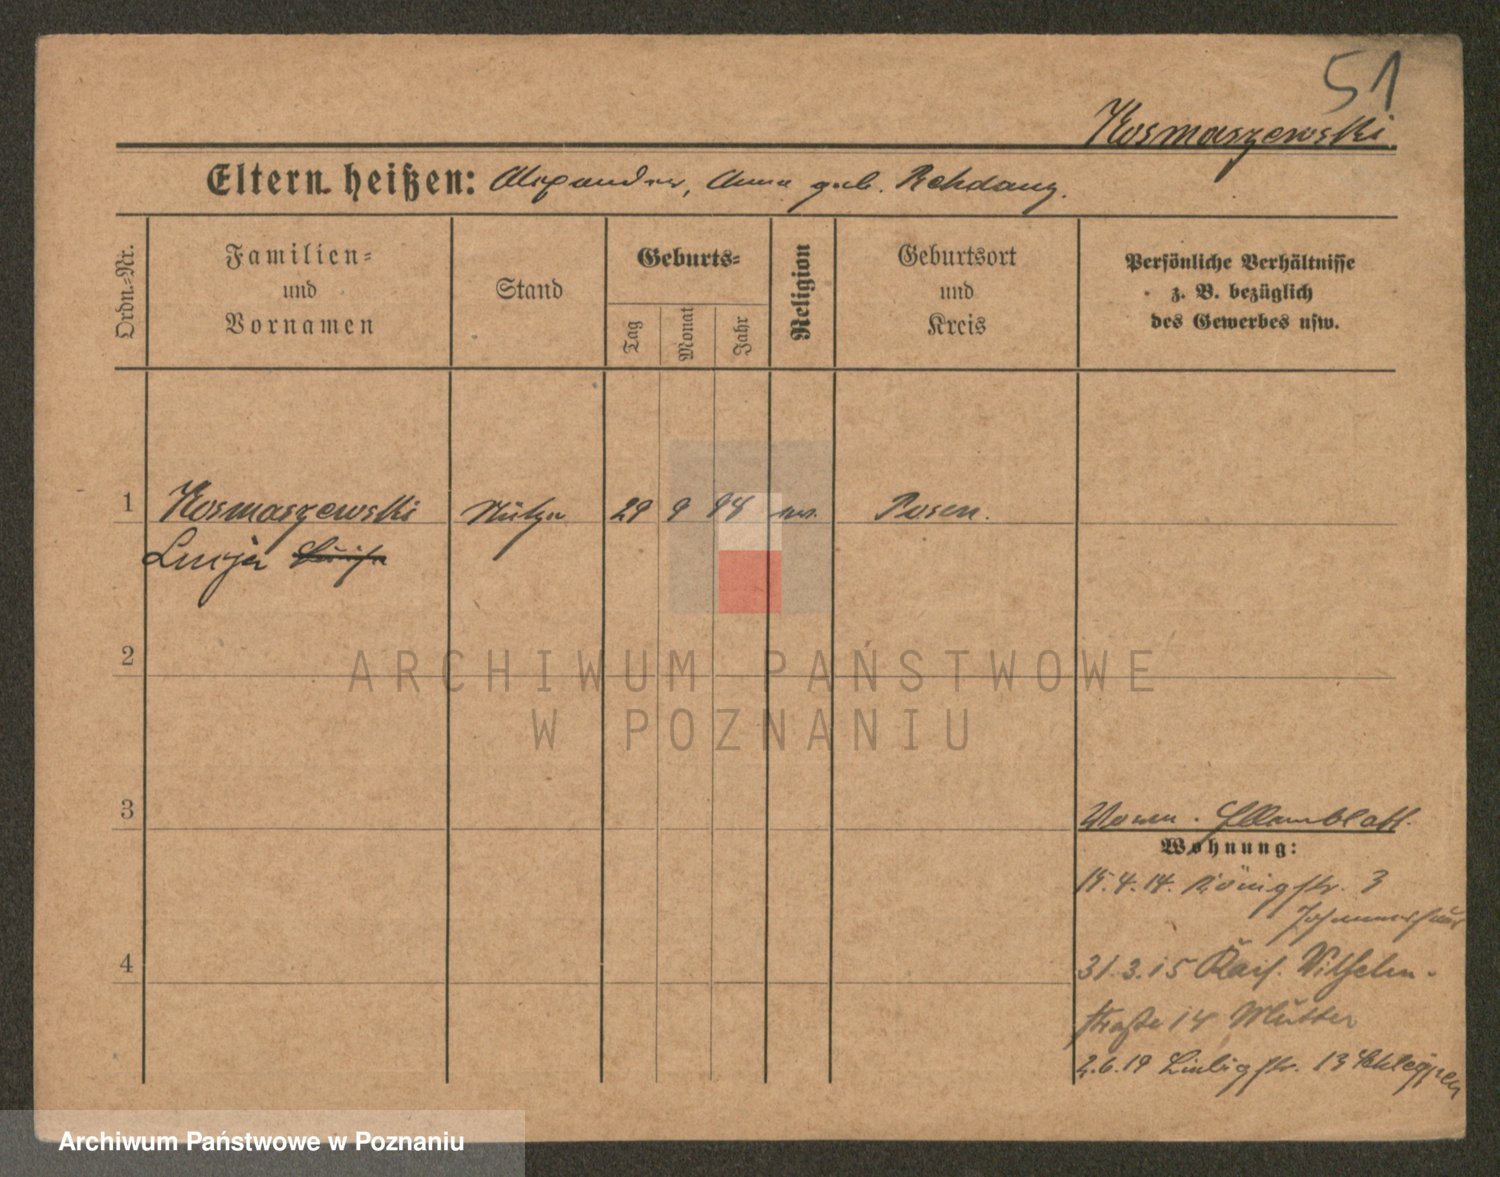 51
Kosmaszewski.
Eltern heißen: Alexander, Anna geb. Rehdanz.
Ordn.-Nr.
Familien-
und
Vornamen
Stand
Geburts-
Tag
Monat
Jahr
Religion
Geburtsort
und
Kreis
Persönliche Verhältnisse
z. B. bezüglich
des Gewerbes usw.
1 Kosmaszewski Stütze 29 9 94 Posen.
2
3
Wohnung:
15.4.14. Königstr. 3
31.3.15 Kais. Wilhelm-
straße 14 Mutter
2.6.19 13
4
ARCHIWUM PAŃSTWOWE
W POZNANIU
Archiwum Państwowe w Poznaniu